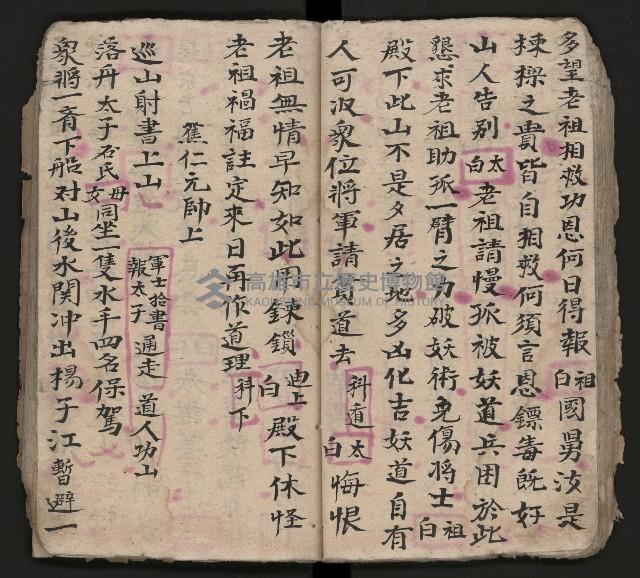 多望老祖相救功恩何日得報祖白國舅汝是
揀探之貴皆自相救何須言恩鏢毒既好
山人告別太白老祖請慢孤被妖道兵困於此
懇求老祖助孤一臂之力破妖術免傷將士祖白
殿下此山不是久居之多凶化吉妖道自有
人可收衆位將軍請道去科道太白悔恨
老祖無情早知如此用鍊鎖迫上白殿下休怪
老祖禍福註定來日再作道理科下
蕉仁元帥上
巡山射書上山軍士拾書報太子通走道人功山
落舟太子石氏母女同坐一隻水手四名保駕
衆將一齊下船对山後水関冲出揚子江暫避一
高雄市立歷史博物館
KAOHSIUNG MUSEUM OF HISTORY